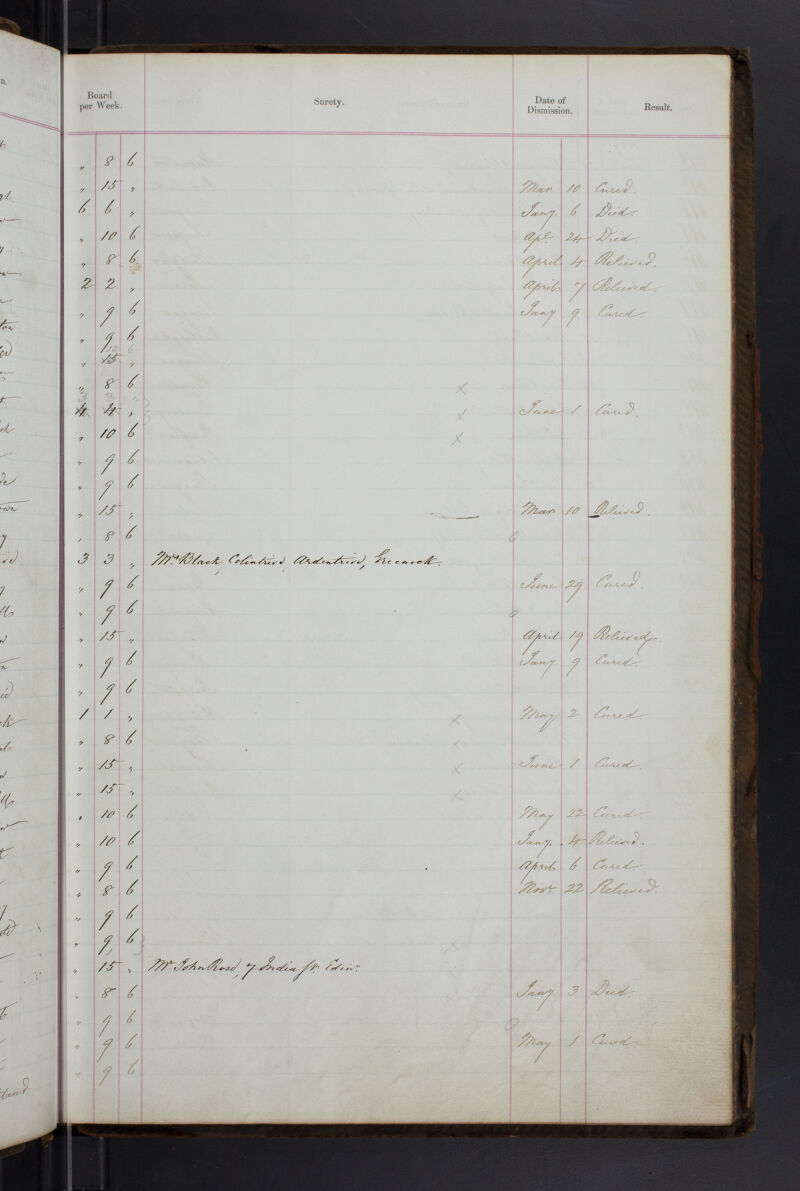 Board per Week. Surety. Date of Dismission. Result.
" 8 6
" 15 " Mar 10 Cured.
6 6 " Jany 6 Died.
" 10 6 Apl 24 Died.
" 8 6 April 4 Relieved.
2 2 " April 7 Relieved.
" 9 6 Jany 9 Cured
" 9 6
10 6
" 15 "
" 8 6 ×
3 3 "
4 4 " × June 1 Cured.
" 10 6 ×
" 9 6
" 9 6
" 15 " Mar 10 Relieved.
" 8 6 0
3 3 " Mrs Black, Colintrive, Ardentrive, Greenock.
" 9 6 June 29 Cured.
" 9 6 0
" 15 " April 19 Relieved.
" 9 6 Jany 9 Cured.
" 9 6
1 1 " × May 2 Cured
" 8 6 ×
" 15 " × June 1 Cured.
" 15 " ×
" 10 6 May 22 Cured.
" 10 6 Jany. 4 Relieved.
" 9 6 April 6 Cured
" 8 6 Novr 22 Relieved.
" 9 6
" 9 6 ×
" 15 " Mr John Rose, 7 India St. Edinr.
" 8 6 Jany 3 Died
" 9 6 0
" 9 6 May 1 Cured.
" 9 6